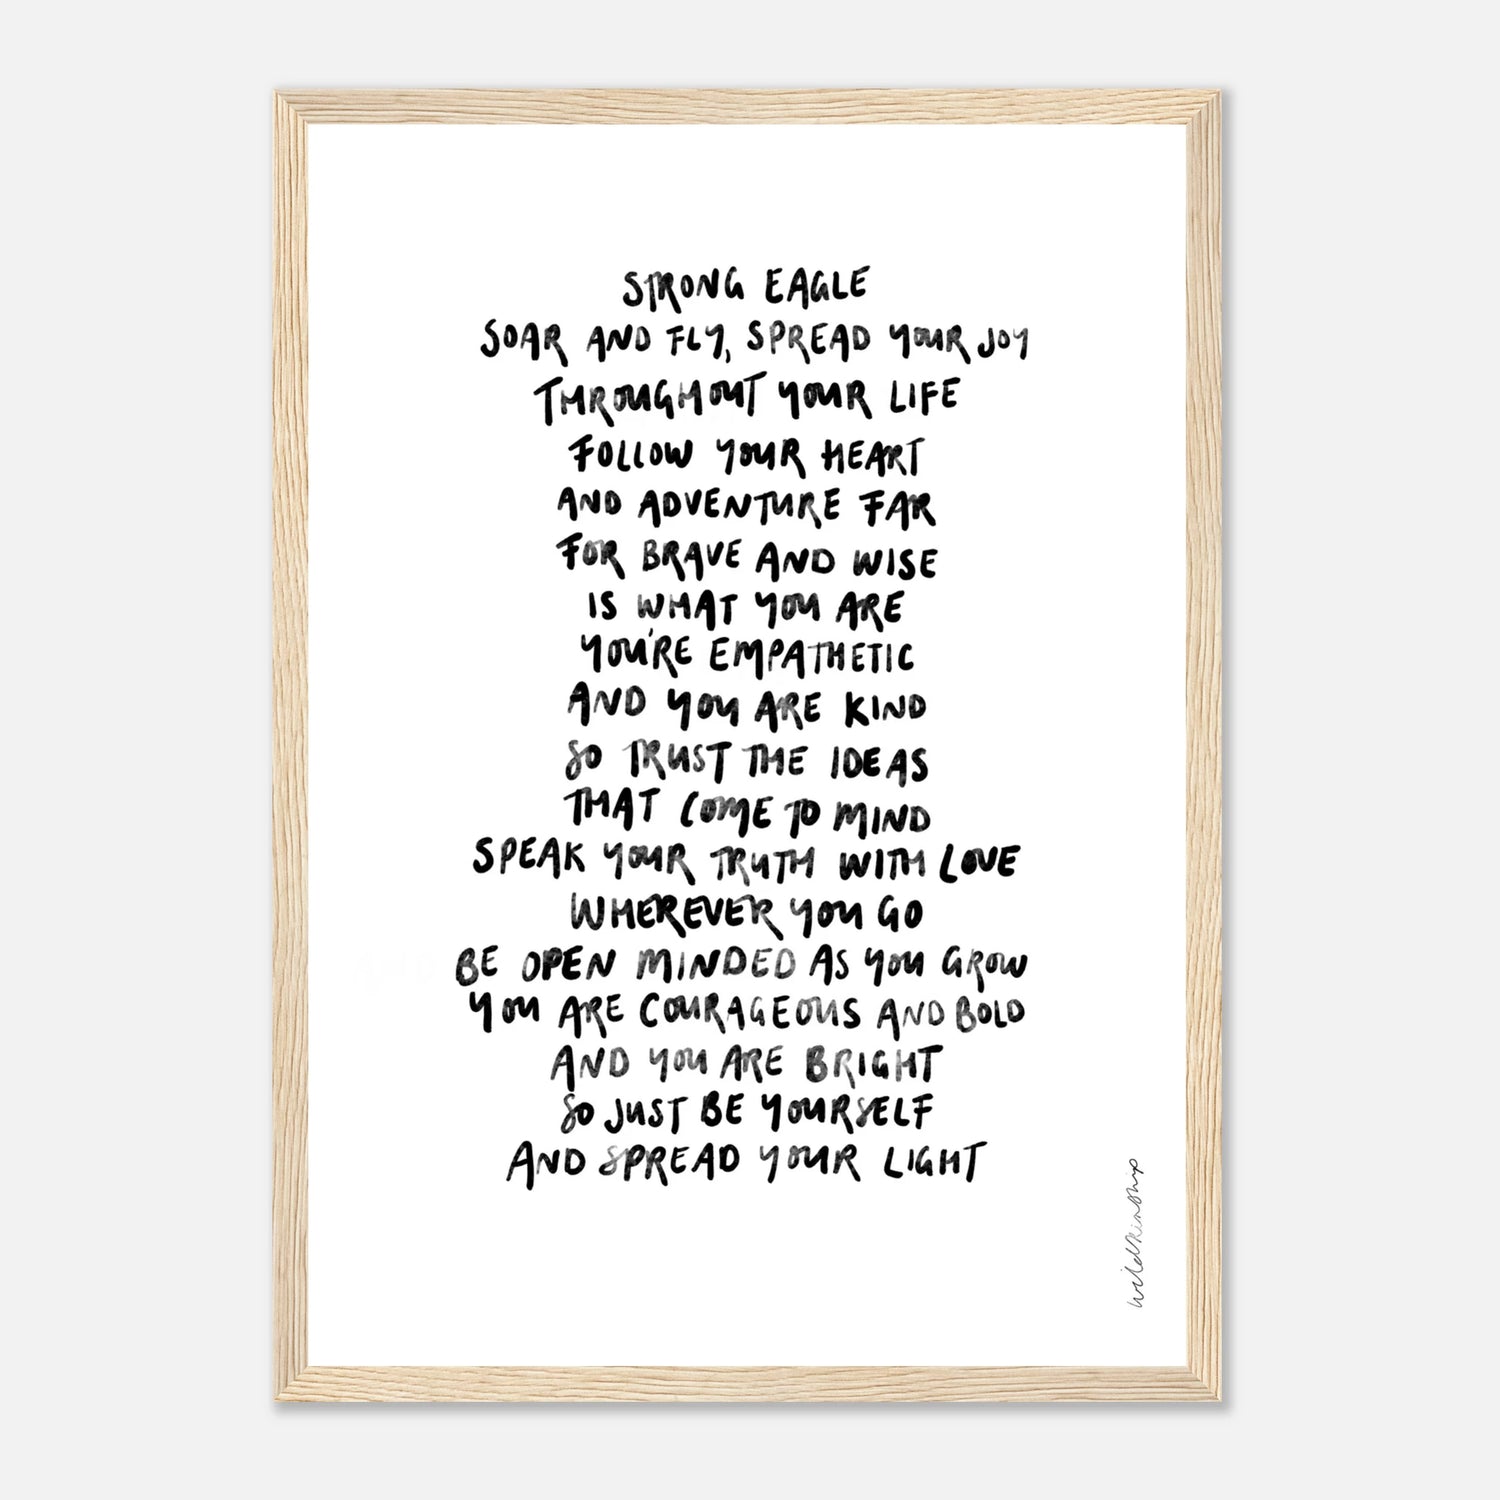 STRONG EAGLE
SOAR AND FLY, SPREAD YOUR JOY
THROUGHOUT YOUR LIFE
FOLLOW YOUR HEART
AND ADVENTURE FAR
FOR BRAVE AND WISE
IS WHAT YOU ARE
YOU'RE EMPATHETIC
AND YOU ARE KIND
SO TRUST THE IDEAS
THAT COME TO MIND
SPEAK YOUR TRUTH WITH LOVE
WHEREVER YOU GO
AND BE OPEN MINDED AS YOU GROW
YOU ARE COURAGEOUS AND BOLD
AND YOU ARE BRIGHT
SO JUST BE YOURSELF
AND SPREAD YOUR LIGHT
wildkinship